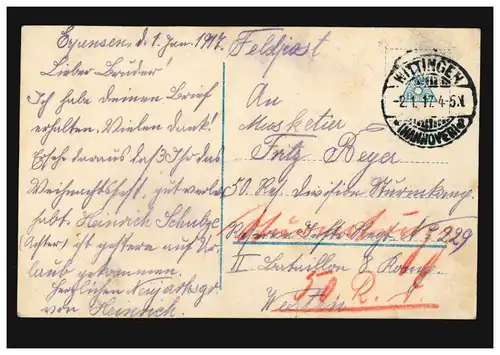 Eyensen, d. 1 Jan. 1917.
Lieber Bruder!
Ich habe deinen Brief
erhalten. Vielen dank!
Ersehe daraus daß Ihr das
Weihnachtsfest gut verlebt
habt. Heinrich Schulze
ist gestern auf Ur-
laub gekommen.
Herzlichen Neujahrsgr.
von Heinrich.
Feldpost
An
Musketier
Fritz Beyer
50. Res. Division Sturmkomp.
Reserve Inftr. Regt. No 229
II Bataillon 8 Komp.
Westen
50. R.
WITTINGEN
-2.1.17. 4-5N
(HANNOVER)